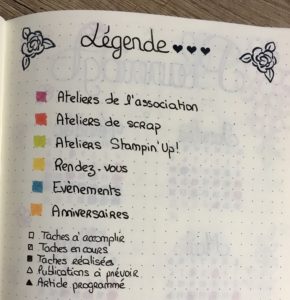 Légende
Ateliers de l'association
Ateliers de scrap
Ateliers Stampin'Up!
Rendez-vous
Evènements
Anniversaires
Tâches à accomplir
Tâches en cours
Tâches réalisées
Publications à prévoir
Article programmé